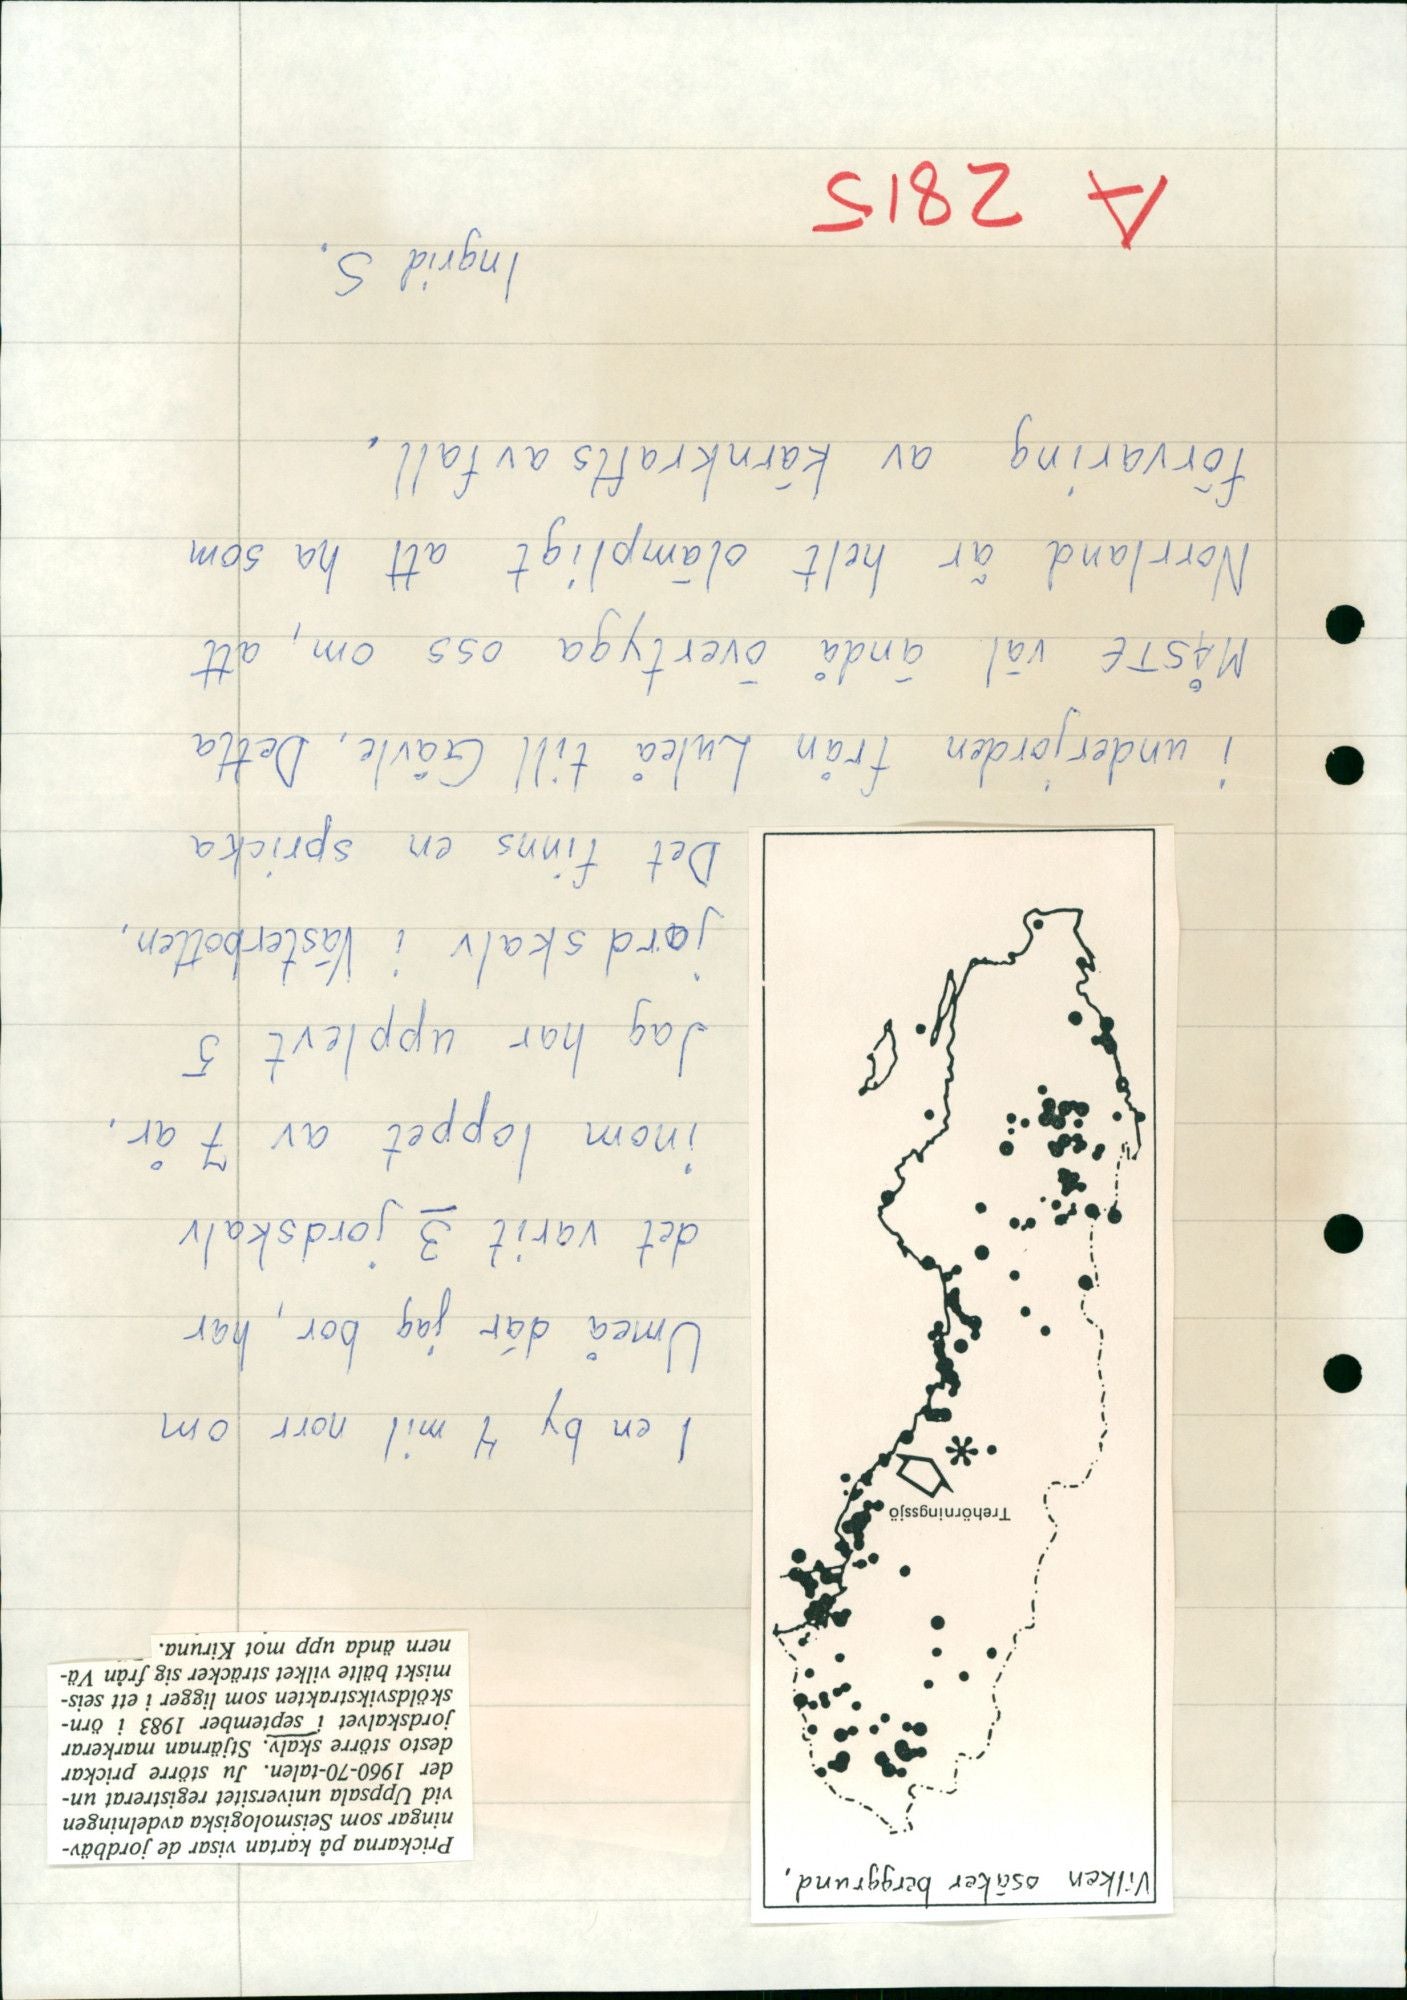 Vilken osäker berggrund.
Trehörningssjö
Prickarna på kartan visar de jordbäv-
ningar som Seismologiska avdelningen
vid Uppsala universitet registrerat un-
der 1960-70-talen. Ju större prickar
desto större skalv. Stjärnan markerar
jordskalvet i september 1983 i örn-
sköldsvikstrakten som ligger i ett seis-
miskt bälte vilket sträcker sig från Vä-
nern ända upp mot Kiruna.
I en by 4 mil norr om
Umeå där jag bor, har
det varit 3 jordskalv
inom loppet av 7 år.
Jag har upplevt 5
jordskalv i Västerbotten.
Det finns en spricka
i underjorden från Luleå till Gävle. Detta
MÅSTE väl ändå övertyga oss om, att
Norrland är helt olämpligt att ha som
förvaring av kärnkraftsavfall.
Ingrid S.
A 2815